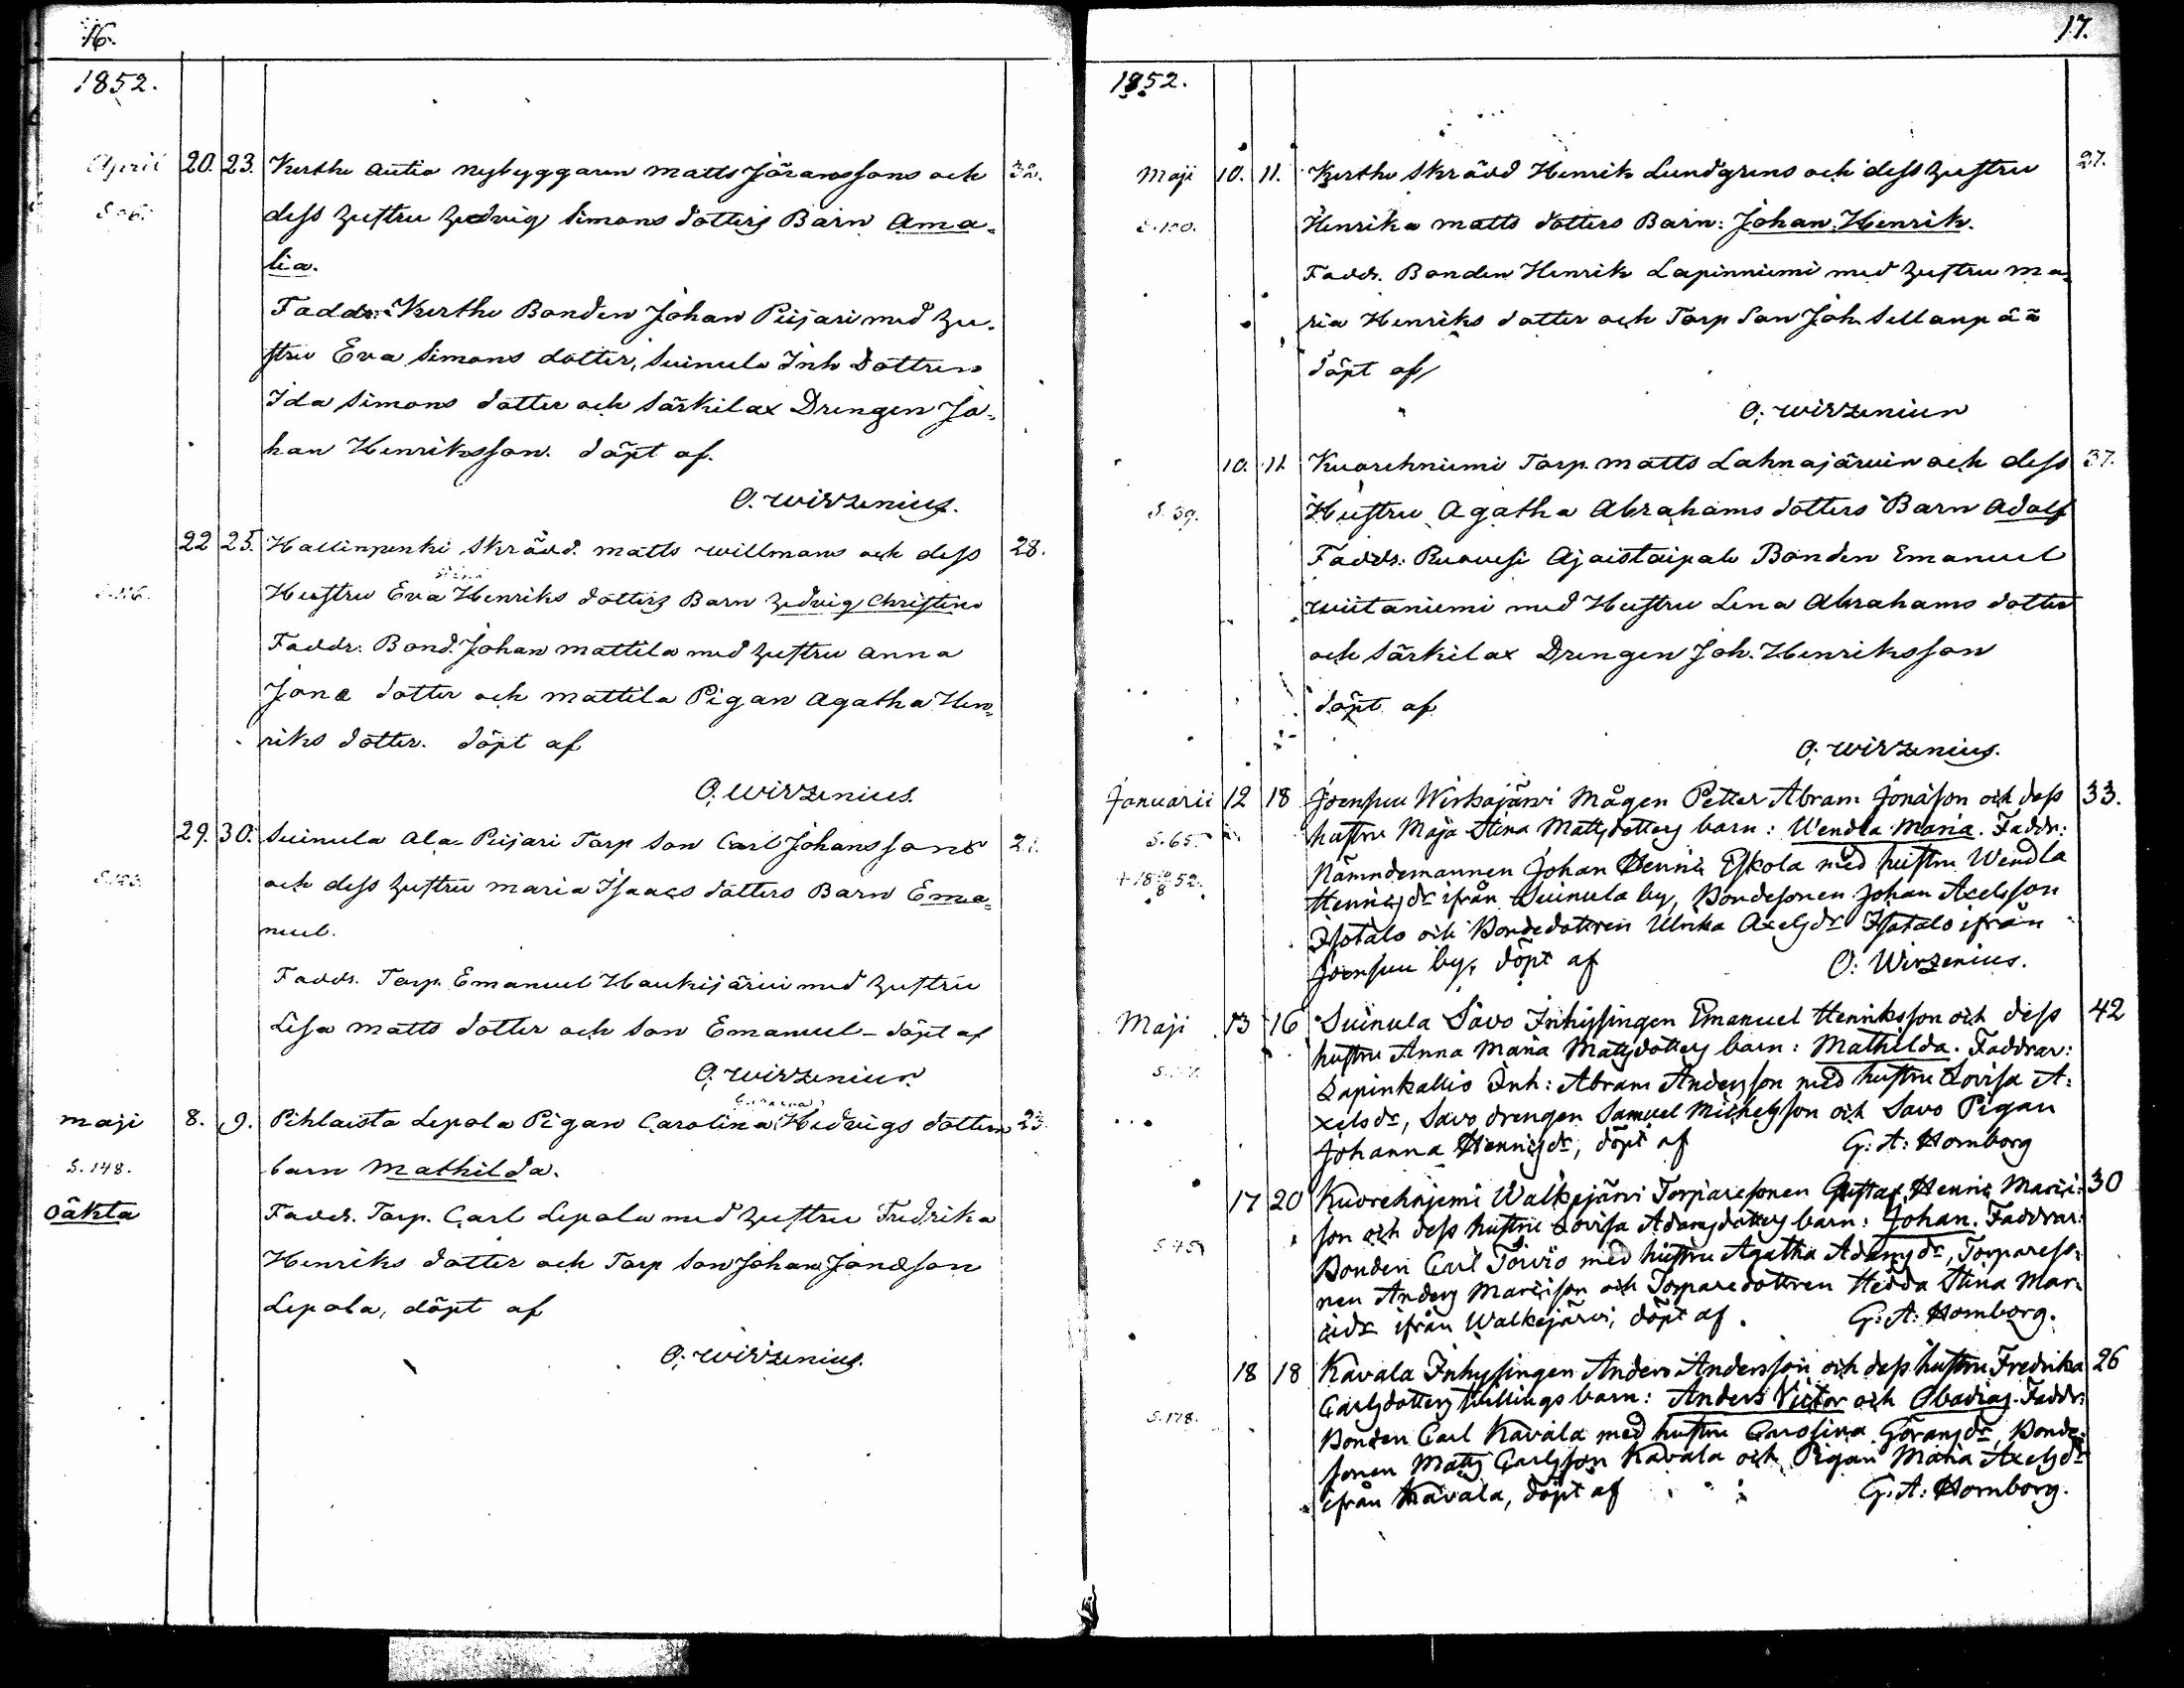 16.
1852.
April 20. 23. Kurthe Autio Nybyggaren Matts Jöranssons och 32.
dess hustru Hedvig Simons dotters Barn Ama-
lia.
Faddr: Kurthe Bonden Johan Piijari med hu-
stru Eva Simons dotter, Suinula Inh Dottren
Ida Simons dotter och Särkilax Drengen Jo-
han Henriksson. döpt af.
O. Wirzenius.
22 25. Hallinpenki Skrädd. Matts Willmans och dess 28.
Hustru Eva Stina Henriks dotters Barn Hedvig Christina
Faddr. Bond. Johan Mattila med hustru Anna
Jona dotter och Mattila Pigan Agatha Hen-
riks dotter. döpt af
O. Wirzenius.
29. 30. Suinula Ala-Piijari Torp Son Carl Johanssons 21.
och dess hustru Maria Isaacs dotters Barn Ema-
nuel.
Faddr. Torp. Emanuel Haukijärvi med hustru
Lisa Matts dotter och Son Emanuel - döpt af
O. Wirzenius
Maji 8. 9. Pihlaisto Lepola Pigan Carolina Hedvigs dotters 23.
S. 148. barn Mathilda.
Oäkta Faddr. Torp. Carl Lepola med hustru Fredrika
Henriks dotter och Torp Son Johan Jonasson
Lepola, döpt af
O. Wirzenius.
17.
1852.
Maji 10. 11. Kurthe Skrädd Henrik Lundgrens och dess hustru 27.
S. 100. Henrika Matts dotters Barn: Johan Henrik.
Faddr. Bonden Henrik Lapinniemi med hustru Ma-
ria Henriks dotter och Torp Son Joh. Sellanpää
döpt af
O. Wirzenius
10. 11. Kuorehniemi Torp. Matts Lahnajärvin och dess 37.
S. 39. Hustru Agatha Abrahams dotters Barn Adolf
Faddr: Ruovesi Ajaistaipale Bonden Emanuel
Wiitaniemi med Hustru Lena Abrahams dotter
och Särkilax Drengen Joh. Henriksson
döpt af
O. Wirzenius.
Januarii 12 18 Joensuu Wirkajärvi Mågen Petter Abram Jonasson och dess 33.
S. 65. hustru Maja Stina Mattsdotters barn: Wendla Maria. Faddr:
+ 18 10/8 52. Nämndemannen Johan Henric Eskola med hustru Wendla
Henricsdr ifrån Suinula by, Bondesonen Johan Axelsson
Isotalo och Bondedottren Ulrika Axelsdr Isotalo ifrån
Joensuu by, döpt af O: Wirzenius.
Maji 13 16 Suinula Savo Inhysingen Emanuel Henriksson och dess 42
hustru Anna Maria Mattsdotters barn: Mathilda. Faddrar:
Lapinkallio Inh: Abram Andersson med hustru Lovisa A-
xelsdr, Savo drengen Samuel Michelsson och Savo Pigan
Johanna Henricsdr, döpt af G: A: Homborg
17 20 Kuorehniemi Walkejärvi Torparesonen Gustaf Henric Marci- 30
S 45 son och dess hustru Lovisa Adamsdotters barn: Johan. Faddrar:
Bonden Carl Toivio med hustru Agatha Adamsdr, Torpareso-
nen Anders Marcison och Torparedottren Hedda Stina Mar-
cidr ifrån Walkejärvi, döpt af. G: A: Homborg.
18 18 Kavala Inhysingen Anders Andersson och dess hustru Fredrika 26
Carlsdotters tvillings barn: Anders Victor och Obadias. Faddr:
S. 178. Bonden Carl Kavala med hustru Carolina Göransdr, Bonde-
sonen Matts Carlsson Kavala och Pigan Maria Axelsdr
ifrån Kavala, döpt af G: A: Homborg.